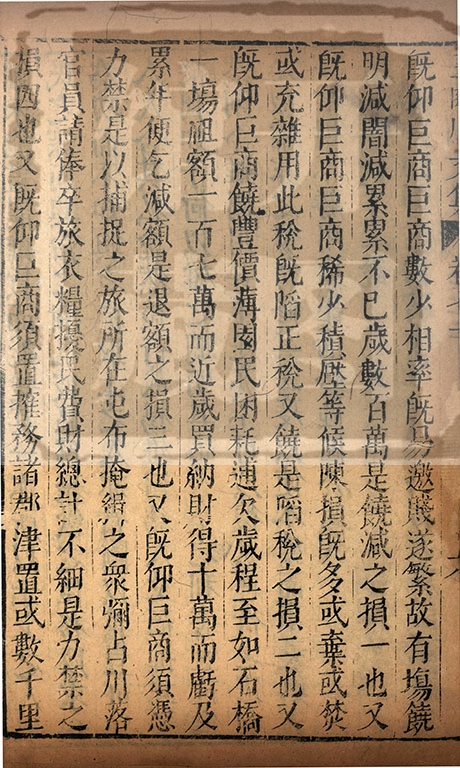 既仰巨商巨商數少相率既易邀賤遂繁故有塲饒
明減闇減累累不已歲數百萬是饒減之損一也又
既仰巨商巨商稀少積壓等候陳損既多或棄或焚
或充雜用此稅既陷正稅又饒是陷稅之損二也又
既仰巨商饒豐價薄園民困耗逋欠歲程至如石橋
一塲祖額一百七萬而近歲買納財得十萬而虧及
累年便乞減額是退額之損三也又既仰巨商須憑
力禁是以捕捉之旅所在屯布掩緝之衆彌占川落
官員請俸卒旅衣糧擾民費財總計不細是力禁之
損四也又既仰巨商須置搉務諸郡津置或數千里